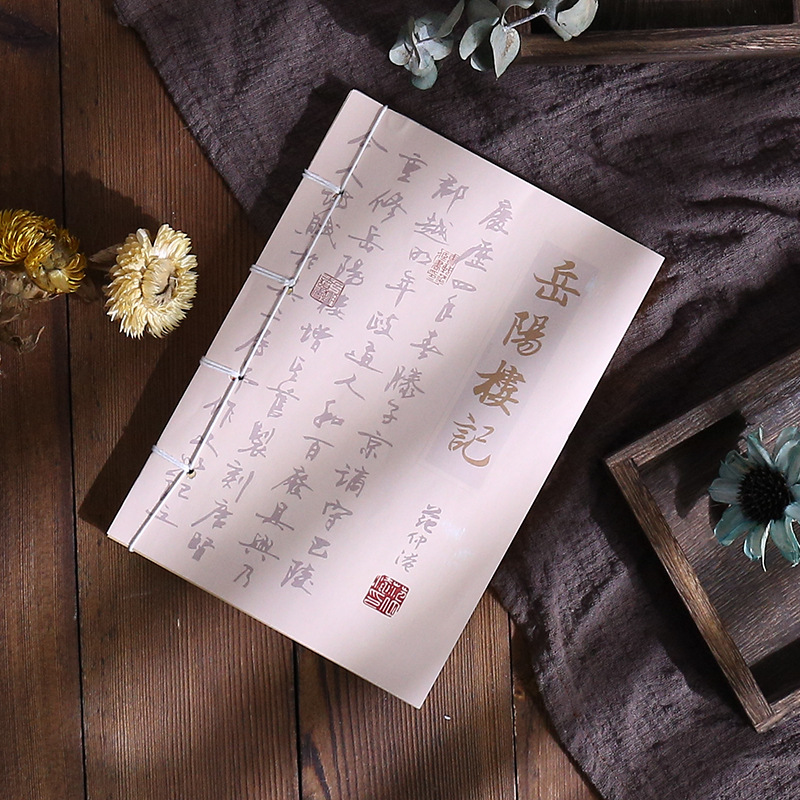 岳陽樓記
范仲淹
慶歷四年春滕子京謫守巴陵
郡越明年政通人和百廢具興乃
重修岳陽樓增其舊製刻唐賢
今人詩賦於其上屬予作文以記之